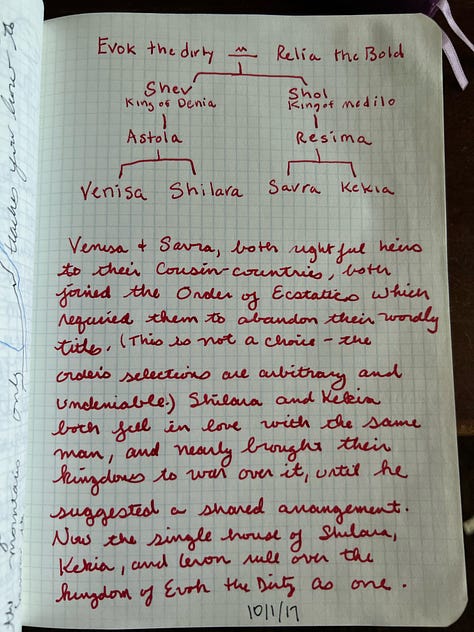 Evok the dirty m = Relia the Bold
Shev Shol
King of Denia King of Medilo
Astola Resima
Venisa Shilara Savra Kekia
Venisa + Savra, both rightful heirs
to their Cousin-countries, both
joined the Order of Ecstatics which
required them to abandon their wordly
title. (This is not a choice - the
order's selections are arbitrary and
undeniable.) Shilara and Kekia
both fell in love with the same
man, and nearly brought their
kingdoms to war over it, until he
suggested a shared arrangement.
Now the single house of Shilara,
Kekia, and rule over the
kingdom of Evok the Dirty as one.
10/1/17
teaches you how to
mountains only